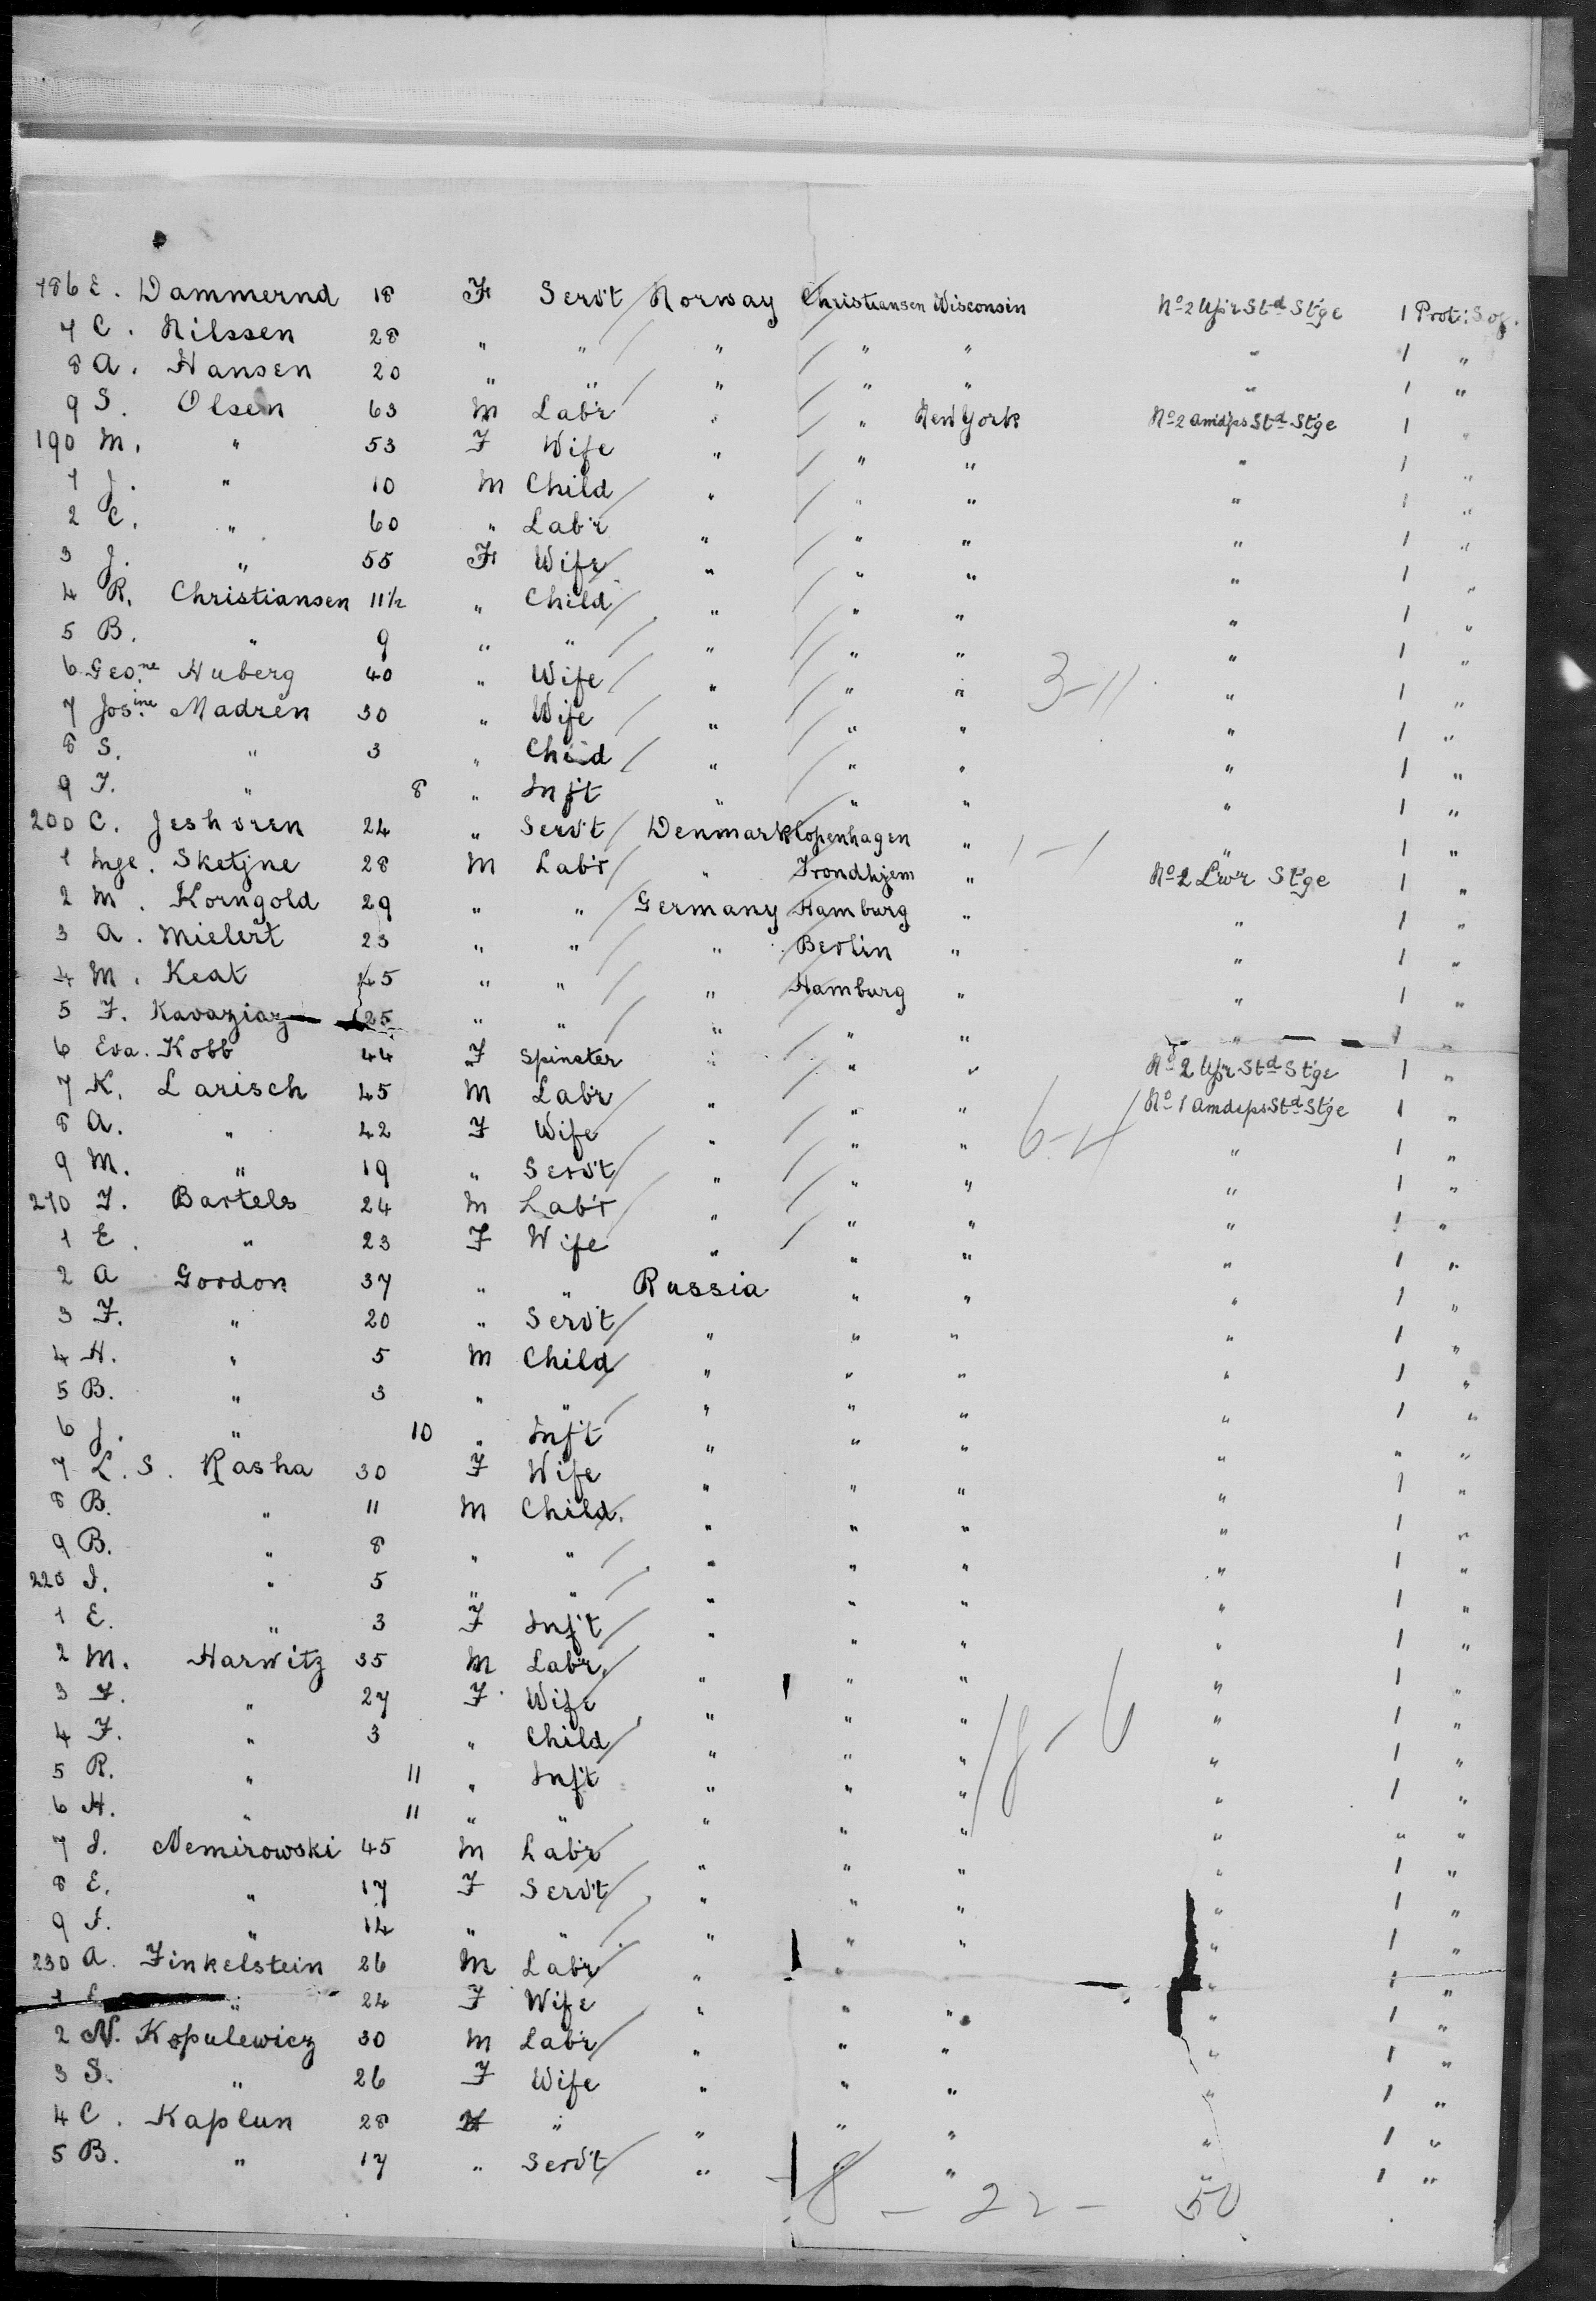 186 E. Dammernd 18 F Serv't Norway Christiansen Wisconsin No 2 Upr Std Stge 1 Prot: Soj.
7 C. Nilssen 28 " " " " " " 1 "
8 A. Hansen 20 " " " " " " 1 "
9 S. Olsen 63 M Lab'r " " New York No 2 amidps Std Stge 1 "
190 M. " 53 F Wife " " " " 1 "
1 J. " 10 M Child " " " " 1 "
2 C. " 60 " Lab'r " " " " 1 "
3 J. " 55 F Wife " " " " 1 "
4 R. Christiansen 11½ " Child " " " " 1 "
5 B. " 9 " " " " " " 1 "
6 Geo.ne Huberg 40 " Wife " " " 3-11 " 1 "
7 Jos.ine Madren 30 " Wife " " " " 1 "
8 S. " 3 " Child " " " " 1 "
9 F. " 8 " Inf't " " " " 1 "
200 C. Jeshoren 24 " Serv't Denmark Copenhagen " 1-1 " 1 "
1 Inge. Sketjne 28 M Lab'r " Trondhjem " No 2 Lw'r Stge 1 "
2 M. Korngold 29 " " Germany Hamburg " " 1 "
3 A. Mielert 23 " " " Berlin " " 1 "
4 M. Keat 45 " " " Hamburg " " 1 "
5 F. Kavaziaz 25 " " " " " " 1 "
6 Eva. Kobb 44 F Spinster " " " No 2 Upr Std Stge 1 "
7 K. Larisch 45 M Lab'r " " " No 1 amdeps Std Stge 1 "
8 A. " 42 F Wife " " " 6-4 " 1 "
9 M. " 19 " Serv't " " " " 1 "
210 F. Bartels 24 M Lab'r " " " " 1 "
1 E. " 23 F Wife " " " " 1 "
2 A Gordon 37 " " Russia " " " 1 "
3 F. " 20 " Serv't " " " " 1 "
4 H. " 5 M Child " " " " 1 "
5 B. " 3 " " " " " " 1 "
6 J. " 10 " Inf't " " " " " "
7 L. S. Rasha 30 F Wife " " " " 1 "
8 B. " 11 M Child. " " " " 1 "
9 B. " 8 " " " " " " 1 "
220 I. " 5 " " " " " " 1 "
1 E. " 3 F Inf't " " " " 1 "
2 M. Harwitz 35 M Lab'r. " " " " 1 "
3 F. " 27 F Wife " " " " 1 "
4 F. " 3 " Child " " " 18-6 " 1 "
5 R. " 11 " Inf't " " " " 1 "
6 H. " 11 " " " " " " " "
7 I. Nemirowski 45 M Lab'r " " " " 1 "
8 E. " 17 F Serv't " " " " 1 "
9 I. " 14 " " " " " " 1 "
230 A. Finkelstein 26 M Lab'r " " " 1 "
1 " 24 F Wife " " " " 1 "
2 N. Kopulewicz 30 M Lab'r " " " " 1 "
3 S. " 26 F Wife " " " " 1 "
4 C. Kaplun 28 " " " " " 1 "
5 B. " 17 " Serv't " " " " 1 "
8 - 22 - 50